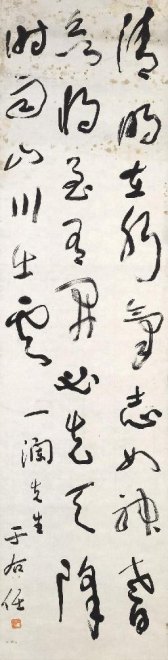 清明在躬氣志如神耆
欲將至有開必先天降
時雨山川出雲
一澗先生
于右任